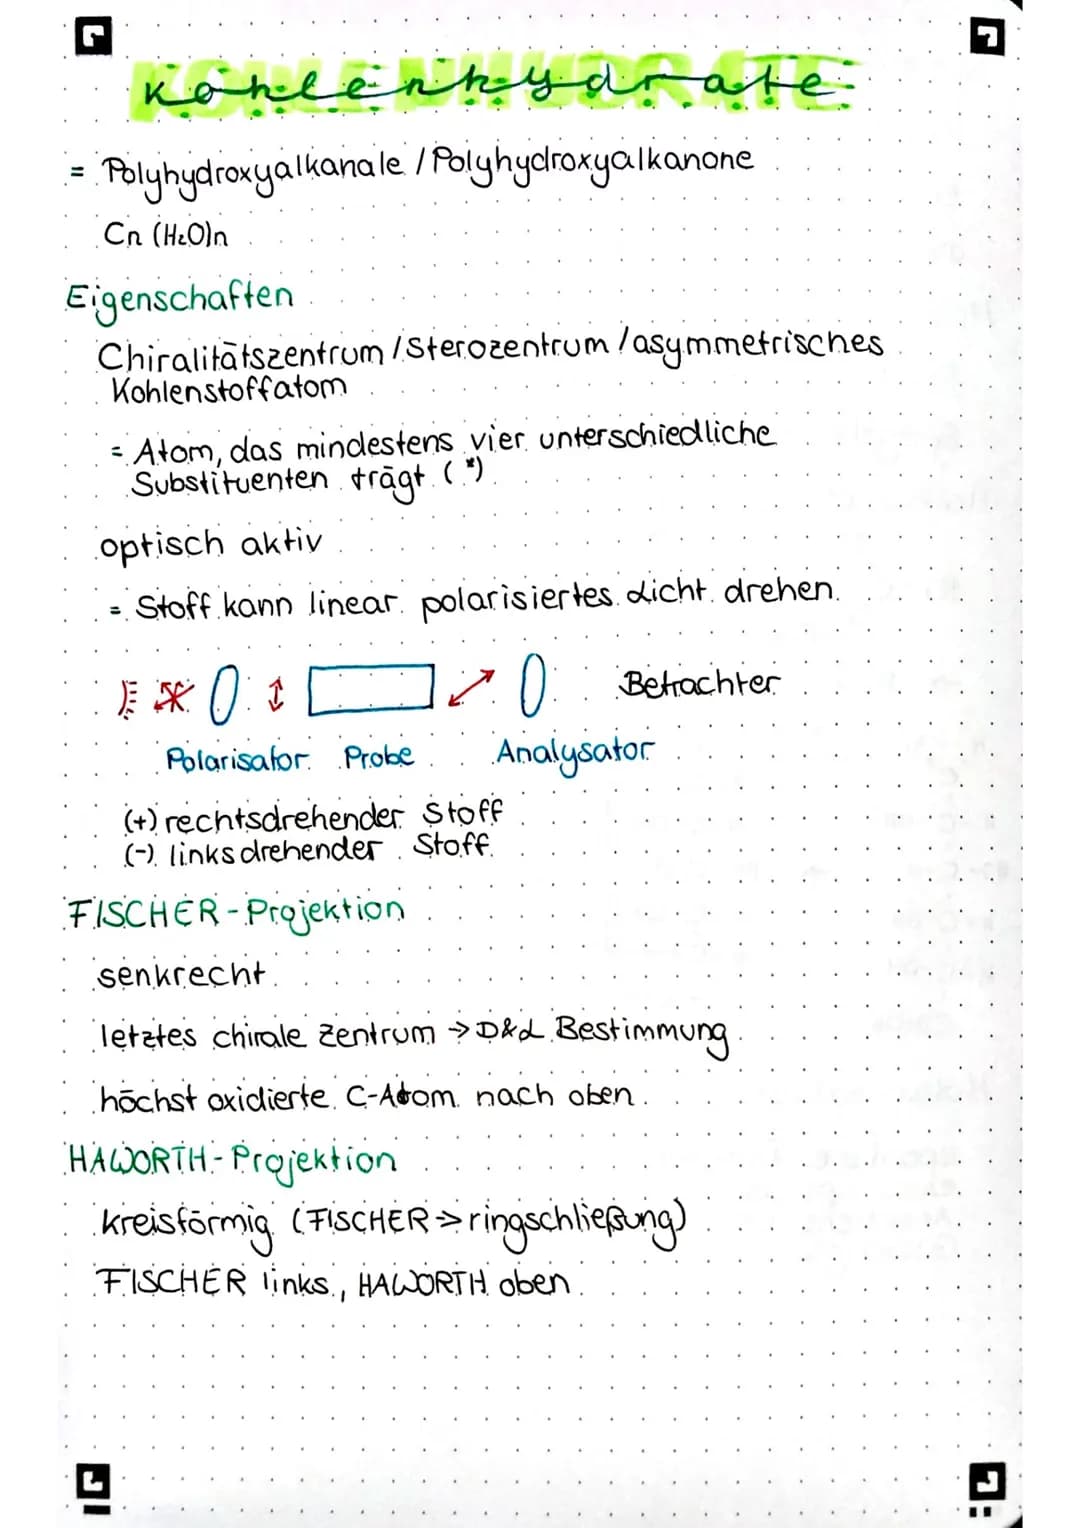 Kohlenhydrate
= Polyhydroxyalkanale / Polyhydroxyalkanone
Cn (H₂O)n
Eigenschaften
Chiralitätszentrum / Sterozentrum / asymmetrisches
Kohlenstoffatom
= Atom, das mindestens vier unterschiedliche
Substituenten trägt (*)
optisch aktiv
= Stoff kann linear polarisiertes Licht drehen.
Betrachter
Polarisator Probe Analysator
(+) rechtsdrehender Stoff
(-) linksdrehender Stoff
FISCHER-Projektion
senkrecht
letztes chirale Zentrum → D&L Bestimmung
höchst oxidierte C-Atom nach oben
HAWORTH-Projektion
kreisförmig (FISCHER → ringschließung)
FISCHER links, HAWORTH oben